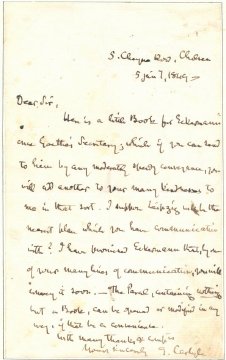 5. Cheyne Row, Chelsea
5 jany, 1849
Dear Sir,
Here is a little Book for Eckermann
once Goethe's Secretary; which if you can send
to him by any moderately speedy conveyance, you
will add another to your many kindnesses to
me in that sort. I suppose Leipzig might be the
nearest place which you have communication
with? I have promised Eckermann that, by one
of your many lines of communication, you will
convey it soon. — The Parcel, containing nothing
but a Book, can be opened or modified in any
way, if that be a convenience.
With many thanks &
Yours sincerely T. Carlyle